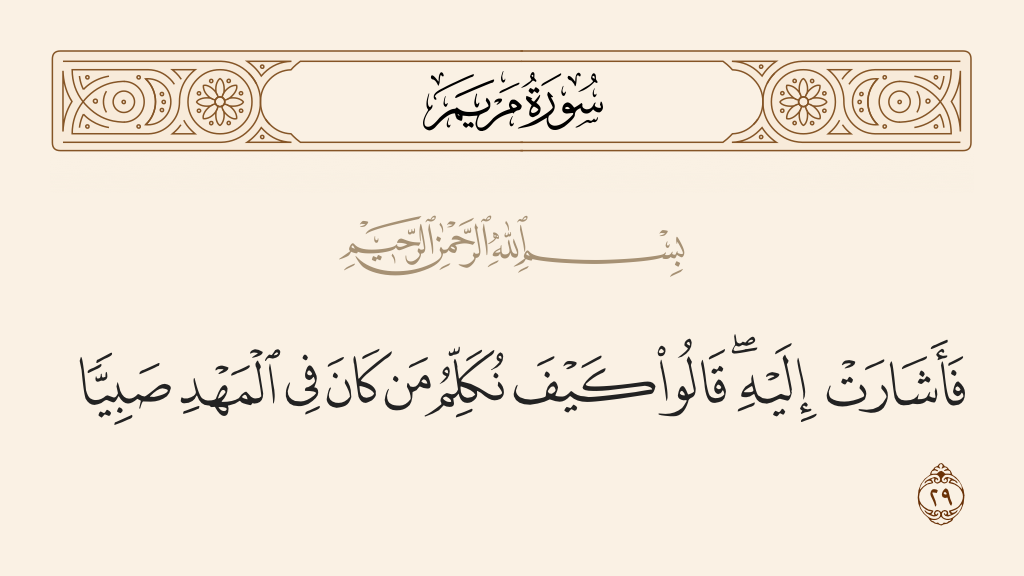 سُورَةُ مَرْيَمَ
بِسْمِ ٱللَّهِ ٱلرَّحْمَٰنِ ٱلرَّحِيمِ
فَأَشَارَتْ إِلَيْهِ ۖ قَالُوا۟ كَيْفَ نُكَلِّمُ مَن كَانَ فِى ٱلْمَهْدِ صَبِيًّا
٢٩